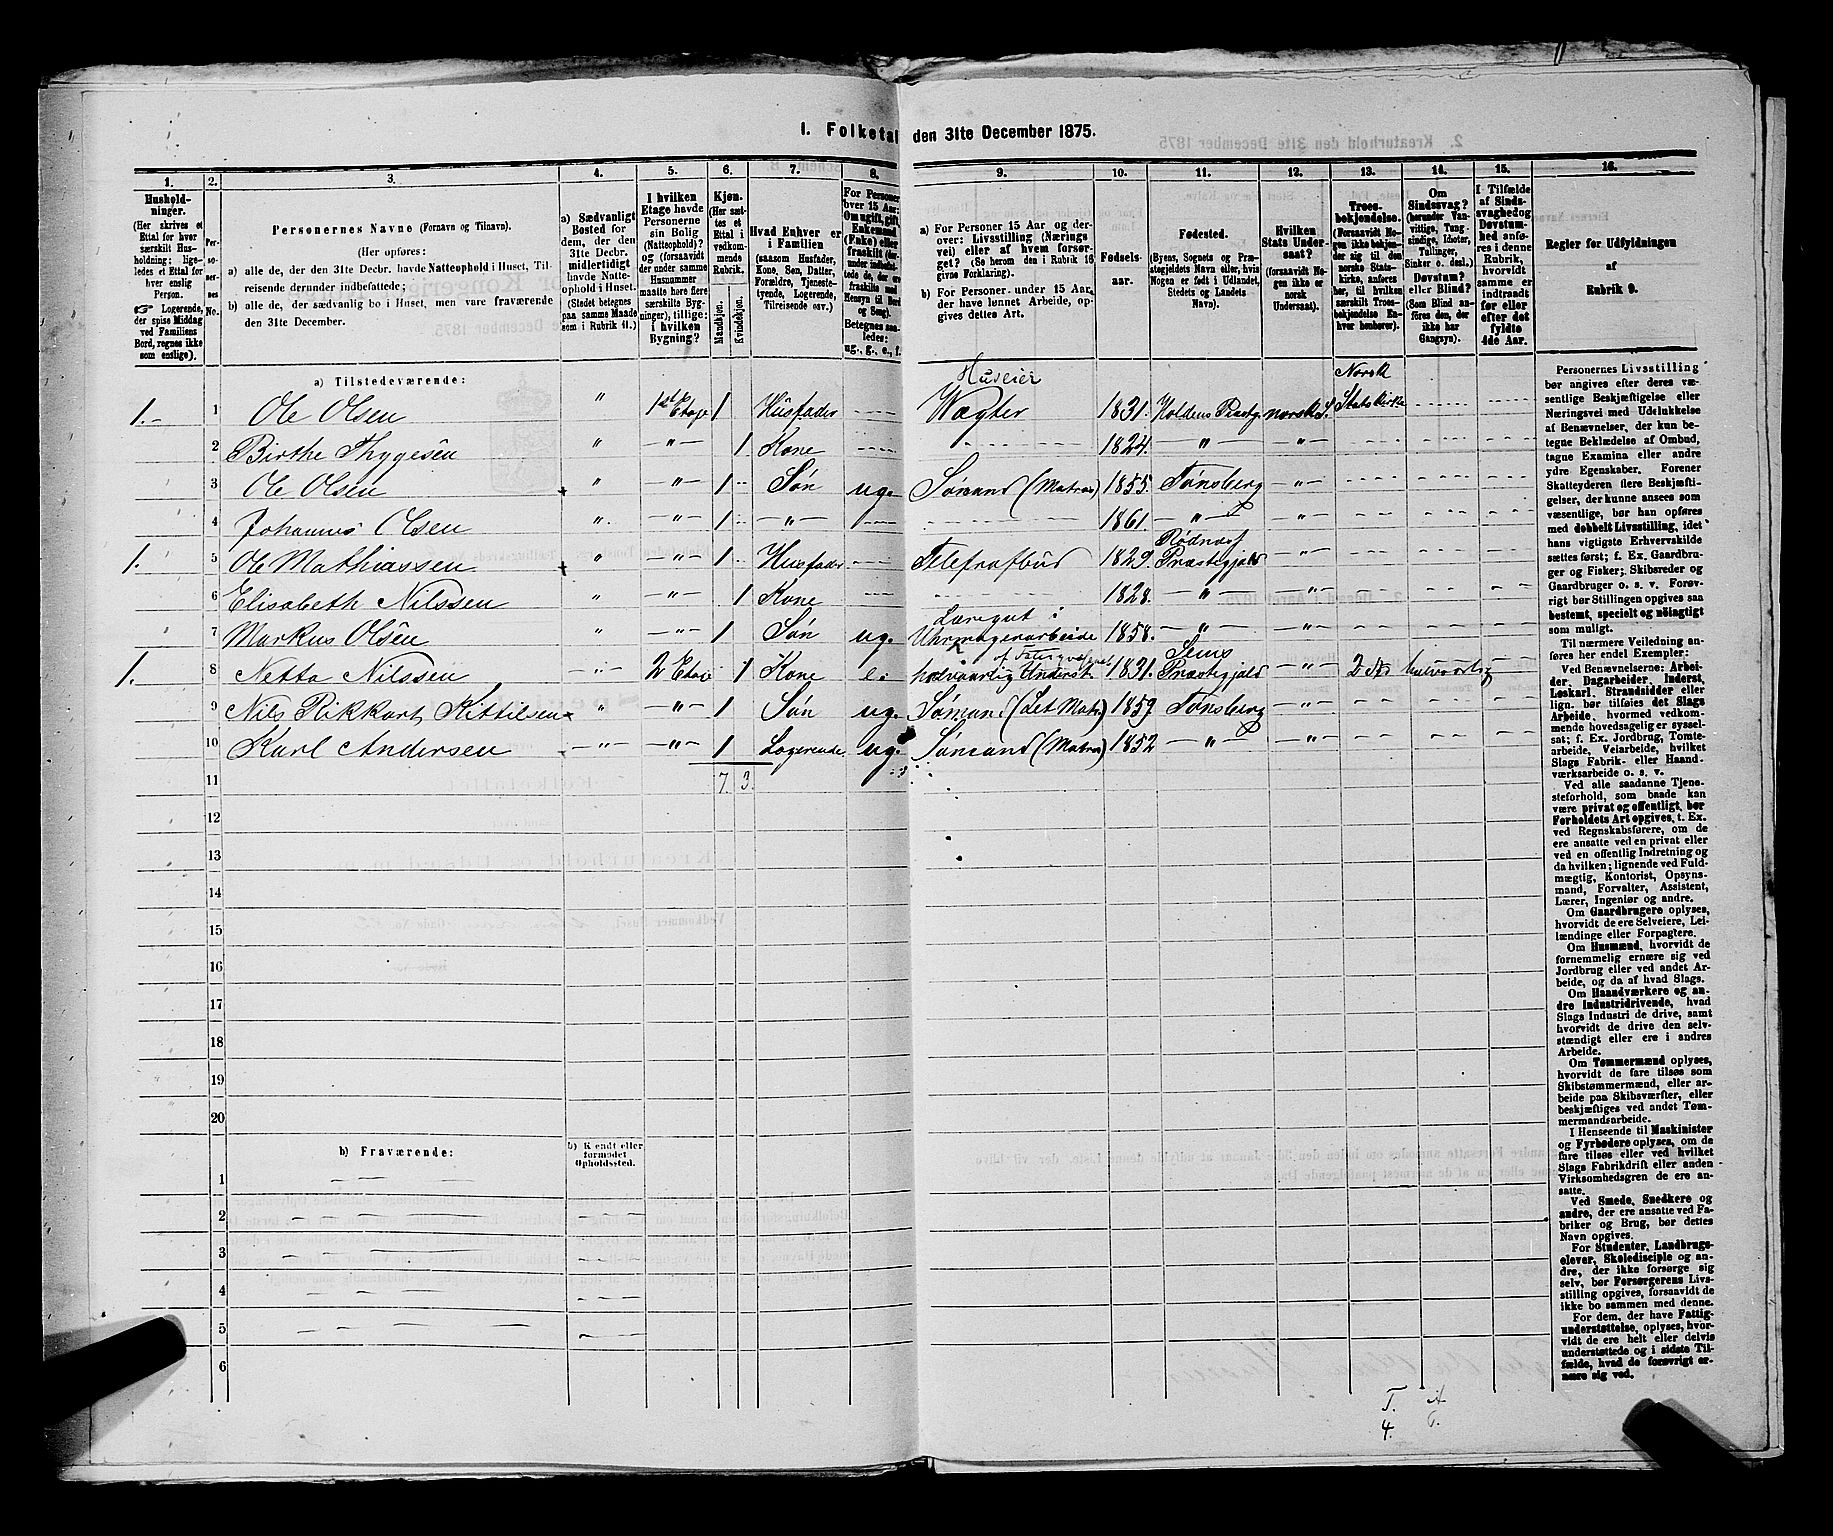 1. Folketal den 31te December 1875.
1. 2. 3. 4. 5. 6. 7. 8. 9. 10. 11. 12. 13. 14. 15. 16.
Hushold-
ninger.
(Her skrives et
Ettal for hver
særskilt Hus-
holdning; lige-
ledes et Ettal for
hver enslig
Person.
☞ Logerende,
der spise Middag
ved Familiens
Bord, regnes ikke
som enslige).
Per-
soner-
nes
No.
Personernes Navne (Fornavn og Tilnavn).
(Her opføres:
a) alle de, der den 31te Decbr. havde Natteophold i Huset, Til-
reisende derunder indbefattede;
b) alle de, der sædvanlig bo i Huset, men vare fraværende
den 31te December.
a) Sædvanligt
Bosted for
dem, der den
31te Decbr.
midlertidigt
havde Natte-
ophold i Huset.
(Stedet betegnes
paa samme Maade
som i Rubrik 11.)
I hvilken
Etage havde
Personerne
sin Bolig
(Natteophold)?
og (forsaavidt
der under samme
Husnummer
maatte høre flere
særskilte Byg-
ninger), tillige:
i hvilken
Bygning?
Kjøn.
(Her sæt-
tes et
Ettal i
vedkom-
mende
Rubrik.
Mandkjøn.
Kvindekjøn.
Hvad Enhver er
i Familien
(saasom Husfader,
Kone, Søn, Datter,
Forældre, Tjeneste-
tyende, Logerende,
Tilreisende osv.)
For Personer
over 15 Aar:
Om ugift, gift,
Enkemand
(Enke) eller
fraskilt (der-
under indbefat-
tede de, der ere
fraskilte med
Hensyn til Bord
og Seng).
Betegnes saa-
ledes:
ug., g., e., f.
a) For Personer 15 Aar og der-
over: Livsstilling (Nærings
vei) eller af hvem forsør-
get? (Se herom den i Rubrik 16
givne Forklaring).
b) For Personer under 15 Aar,
der have lønnet Arbeide, op-
gives dettes Art.
Fødsels-
aar.
Fødested.
(Byens, Sognets og Præ-
stegjeldets Navn eller, hvis
Nogen er født i Udlandet,
Stedets og Landets
Navn).
Hvilken
Stats Under-
saat?
(forsaavidt No-
gen ikke er
norsk
Undersaat).
Troes-
bekjendelse.
(Forsaavidt No-
gen ikke bekjen-
der sig til den
norske Stats-
kirke, anføres
her, til hvilken
særskilt Troes-
bekjendelse En-
hver henhører).
Om
Sindssvag?
(herunder Van-
vittige, Tung-
sindige, Idioter,
Tullinger,
Sinker o. desl.)
Døvstum?
eller Blind?
(Som Blind an-
føres den, der
ikke har
Gangsyn).
I Tilfælde
af Sinds-
svaghed og
Døvstum-
hed anfø-
res i denne
Rubrik,
hvorvidt
samme er
indtraadt
før eller
efter det
fyldte
4de Aar.
Regler for Udfyldningen
af
Rubrik 9.
a) Tilstedeværende:
Huseier Norsk
1. 1 Ole Olsen " 1st Etage 1 Husfader Vægter 1831. Holdens Præstg. norsk S. Statskirke
2 Birthe Thygesen " " 1 Kone 1824. " "
3 Ole Olsen " " 1 Søn ug. Sømand (Matros) 1855. Tønsberg "
4 Johannes Olsen " " 1 " 1861. " "
Rødnæs
1. 5 Ole Mathiassen " " 1 Husfader Telegrafbud 1829. Præstegjæld "
6 Elisabeth Nilssen " " 1 Kone 1828. " "
Læregut i
7 Markus Olsen " " 1 Søn ug. Uhrmagerarbeide 1858. " "
af Fattigvæsenet Sems
1. 8 Netta Nilssen " 2 Etage 1 Kone e. Underst. 1831. Præstegjæld "
9 Nils Rikkart Kittilsen " " 1 Søn ug. Sømand (Let Matr.) 1859 Tønsberg
10 Karl Andersen " " 1 Logerende ug. Sømand (Matros) 1852 " "
11 7. 3.
12
13
14
15
16
17
18
19
20
b) Fraværende:
b) Kjendt eller
formodet
Opholdssted.
1
2
3
4
5
6
Personernes Livsstilling
bør angives efter deres væ-
sentlige Beskjæftigelse eller
Næringsvei med Udelukkelse
af Benævnelser, der kun be-
tegne Beklædelse af Ombud,
tagne Examina eller andre
ydre Egenskaber. Forener
Skatteyderen flere Beskjæfti-
gelser, der kunne ansees som
væsentlige, bør han opføres
med dobbelt Livsstilling, idet
hans vigtigste Erhvervskilde
sættes først; f. Ex. Gaardbru-
ger og Fisker; Skibsreder og
Gaardbruger o. s. v. Forøv-
rigt bør Stillingen opgives saa
bestemt, specielt og nøiagtigt
som muligt.
Til nærmere Veiledning an-
føres her endel Exempler:
Ved Benævnelserne: Arbei-
der, Dagarbeider, Inderst,
Løskarl, Strandsidder eller
lign. bør tilføies det Slags
Arbeide, hvormed vedkom-
mende hovedsagelig er syssel-
sat; f. Ex. Jordbrug, Tomte-
arbeide, Veiarbeide, hvilket
Slags Fabrik- eller Haand-
værksarbeide o. s. v.
Ved alle saadanne Tjene-
steforhold, som baade kan
være privat og offentligt, bør
Forholdets Art opgives, t. Ex.
ved Regnskabsførere, om de
ere ansatte ved en privat eller
ved en offentlig Indretning og
da hvilken; lignende ved Fuld-
mægtig, Kontorist, Opsyns-
mand, Forvalter, Assistent,
Lærer, Ingeniør og andre.
Om Gaardbrugere oplyses,
hvorvidt de ere Selveiere, Lei-
lændinge eller Forpagtere.
Om Husmænd, hvorvidt de
fornemmelig ernære sig ved
Jordbrug eller ved andet Ar-
beide, og da af hvad Slags.
Om Haandværkere og an-
dre Industridrivende, hvad
Slags Industri de drive, samt
hvorvidt de drive den selv-
stændigt eller ere i andres
Arbeide.
Om Tømmermænd oplyses,
hvorvidt de fare tilsøs som
Skibstømmermænd, eller ar-
beide paa Skibsværfter, eller
beskjæftiges ved andet Tøm-
mermandsarbeide.
I Henseende til Maskinister
og Fyrbødere oplyses, om de
fare tilsøs eller ved hvilket
Slags Fabrikdrift eller anden
Virksomhedsgren de ere an-
satte.
Ved Smede, Snedkere og
andre, der ere ansatte ved Fa-
briker og Brug, bør dettes
Navn opgives.
For Studenter, Landbrugs-
elever, Skoledisciple og an-
dre, der ikke forsørge sig
selv, bør Forsørgerens Livs-
stilling opgives, forsaavidt de
ikke bo sammen med denne.
For dem, der have Fattig-
understøttelse, oplyses, hvor-
vidt de ere helt eller delvis
understøttede og i sidste Til-
fælde, hvad de forøvrigt er-
nære sig ved.
T. A
4. T.